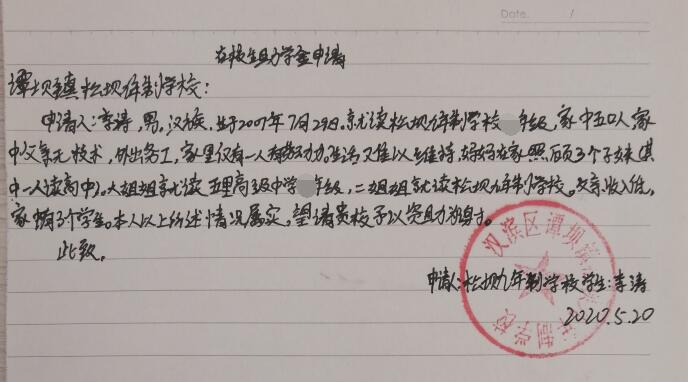 Date.        /
在校生助学金申请
谭坝镇松坝九年制学校：
申请人：李涛，男，汉族，生于2007年7月29日，就读松坝九年制学校 年级，家中五口人，家
中父亲无技术，外出务工，家里仅有一人有劳动力，生活难以维持，妈妈在家照顾3个子妹（其
中一人读高中）。大姐姐就读五里高级中学 年级，二姐姐就读松坝九年制学校。父亲收入低，
家有3个学生。本人以上所述情况属实，望请贵校予以资助为谢。
此致。
申请人：松坝九年制学校学生：李涛
2020.5.20
汉滨区谭坝镇松坝九年制学校